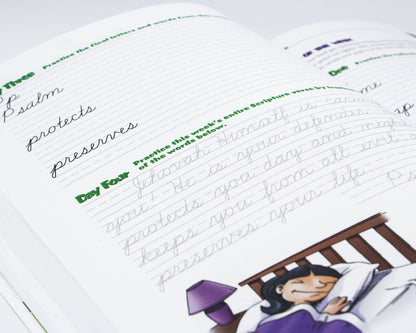 Day Three Practice the final letters and words from this
Pp
Psalm
protects
preserves
Day Four Practice this week's entire Scripture verse by
of the words below.
Jehovah Himself is
you! He is your defender.
protects you day and
keeps you from all evil and
preserves your life. Ps
OF THE WEEK
Day
me
ap